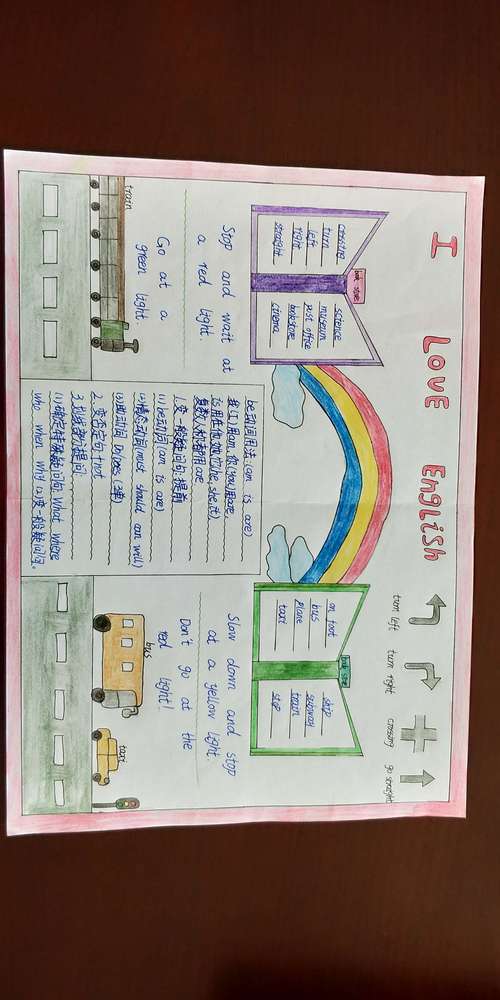 I LOVE English
turn left
turn right
crossing
go straight
book store
crossing
turn
left
right
straight
science
museum
post office
bookstore
cinema
book store
on foot
bus
plane
taxi
ship
subway
train
stop
Stop and wait at
a red light.
Go at a
green light
be动词用法 (am is are)
我(I)用am, 你(you)用are,
is用在他她它(he, she, it)
复数人称都用are
1.变一般疑问句:提前
(1)be动词(am is are)
(2)情态动词(must should can will)
(3)助动词 Do/Does (三单)
2.变否定句:+not
3.划线部分提问:
(1)确定特殊疑问词: What where
who when why (2)变一般疑问句.
Slow down and stop
at a yellow light.
Don't go at the
red light!
train
bus
taxi